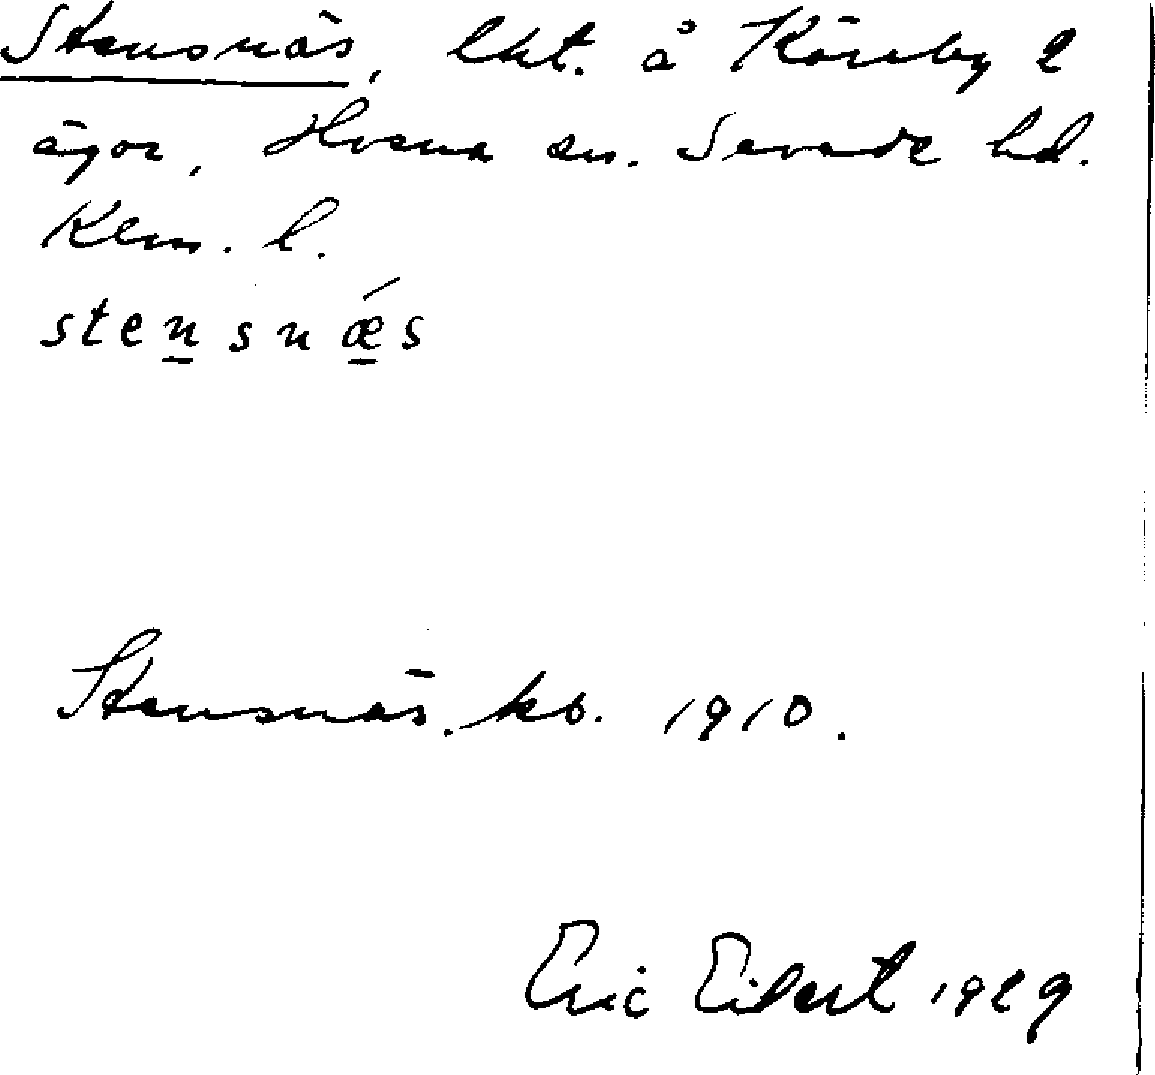 Stensnäs, lht. å Körnby 2
ägor, Hvena sn. Sevede hd.
Klm. l.
stensnǽs
Stensnäs. kb. 1910.
Eric Eilert 1929